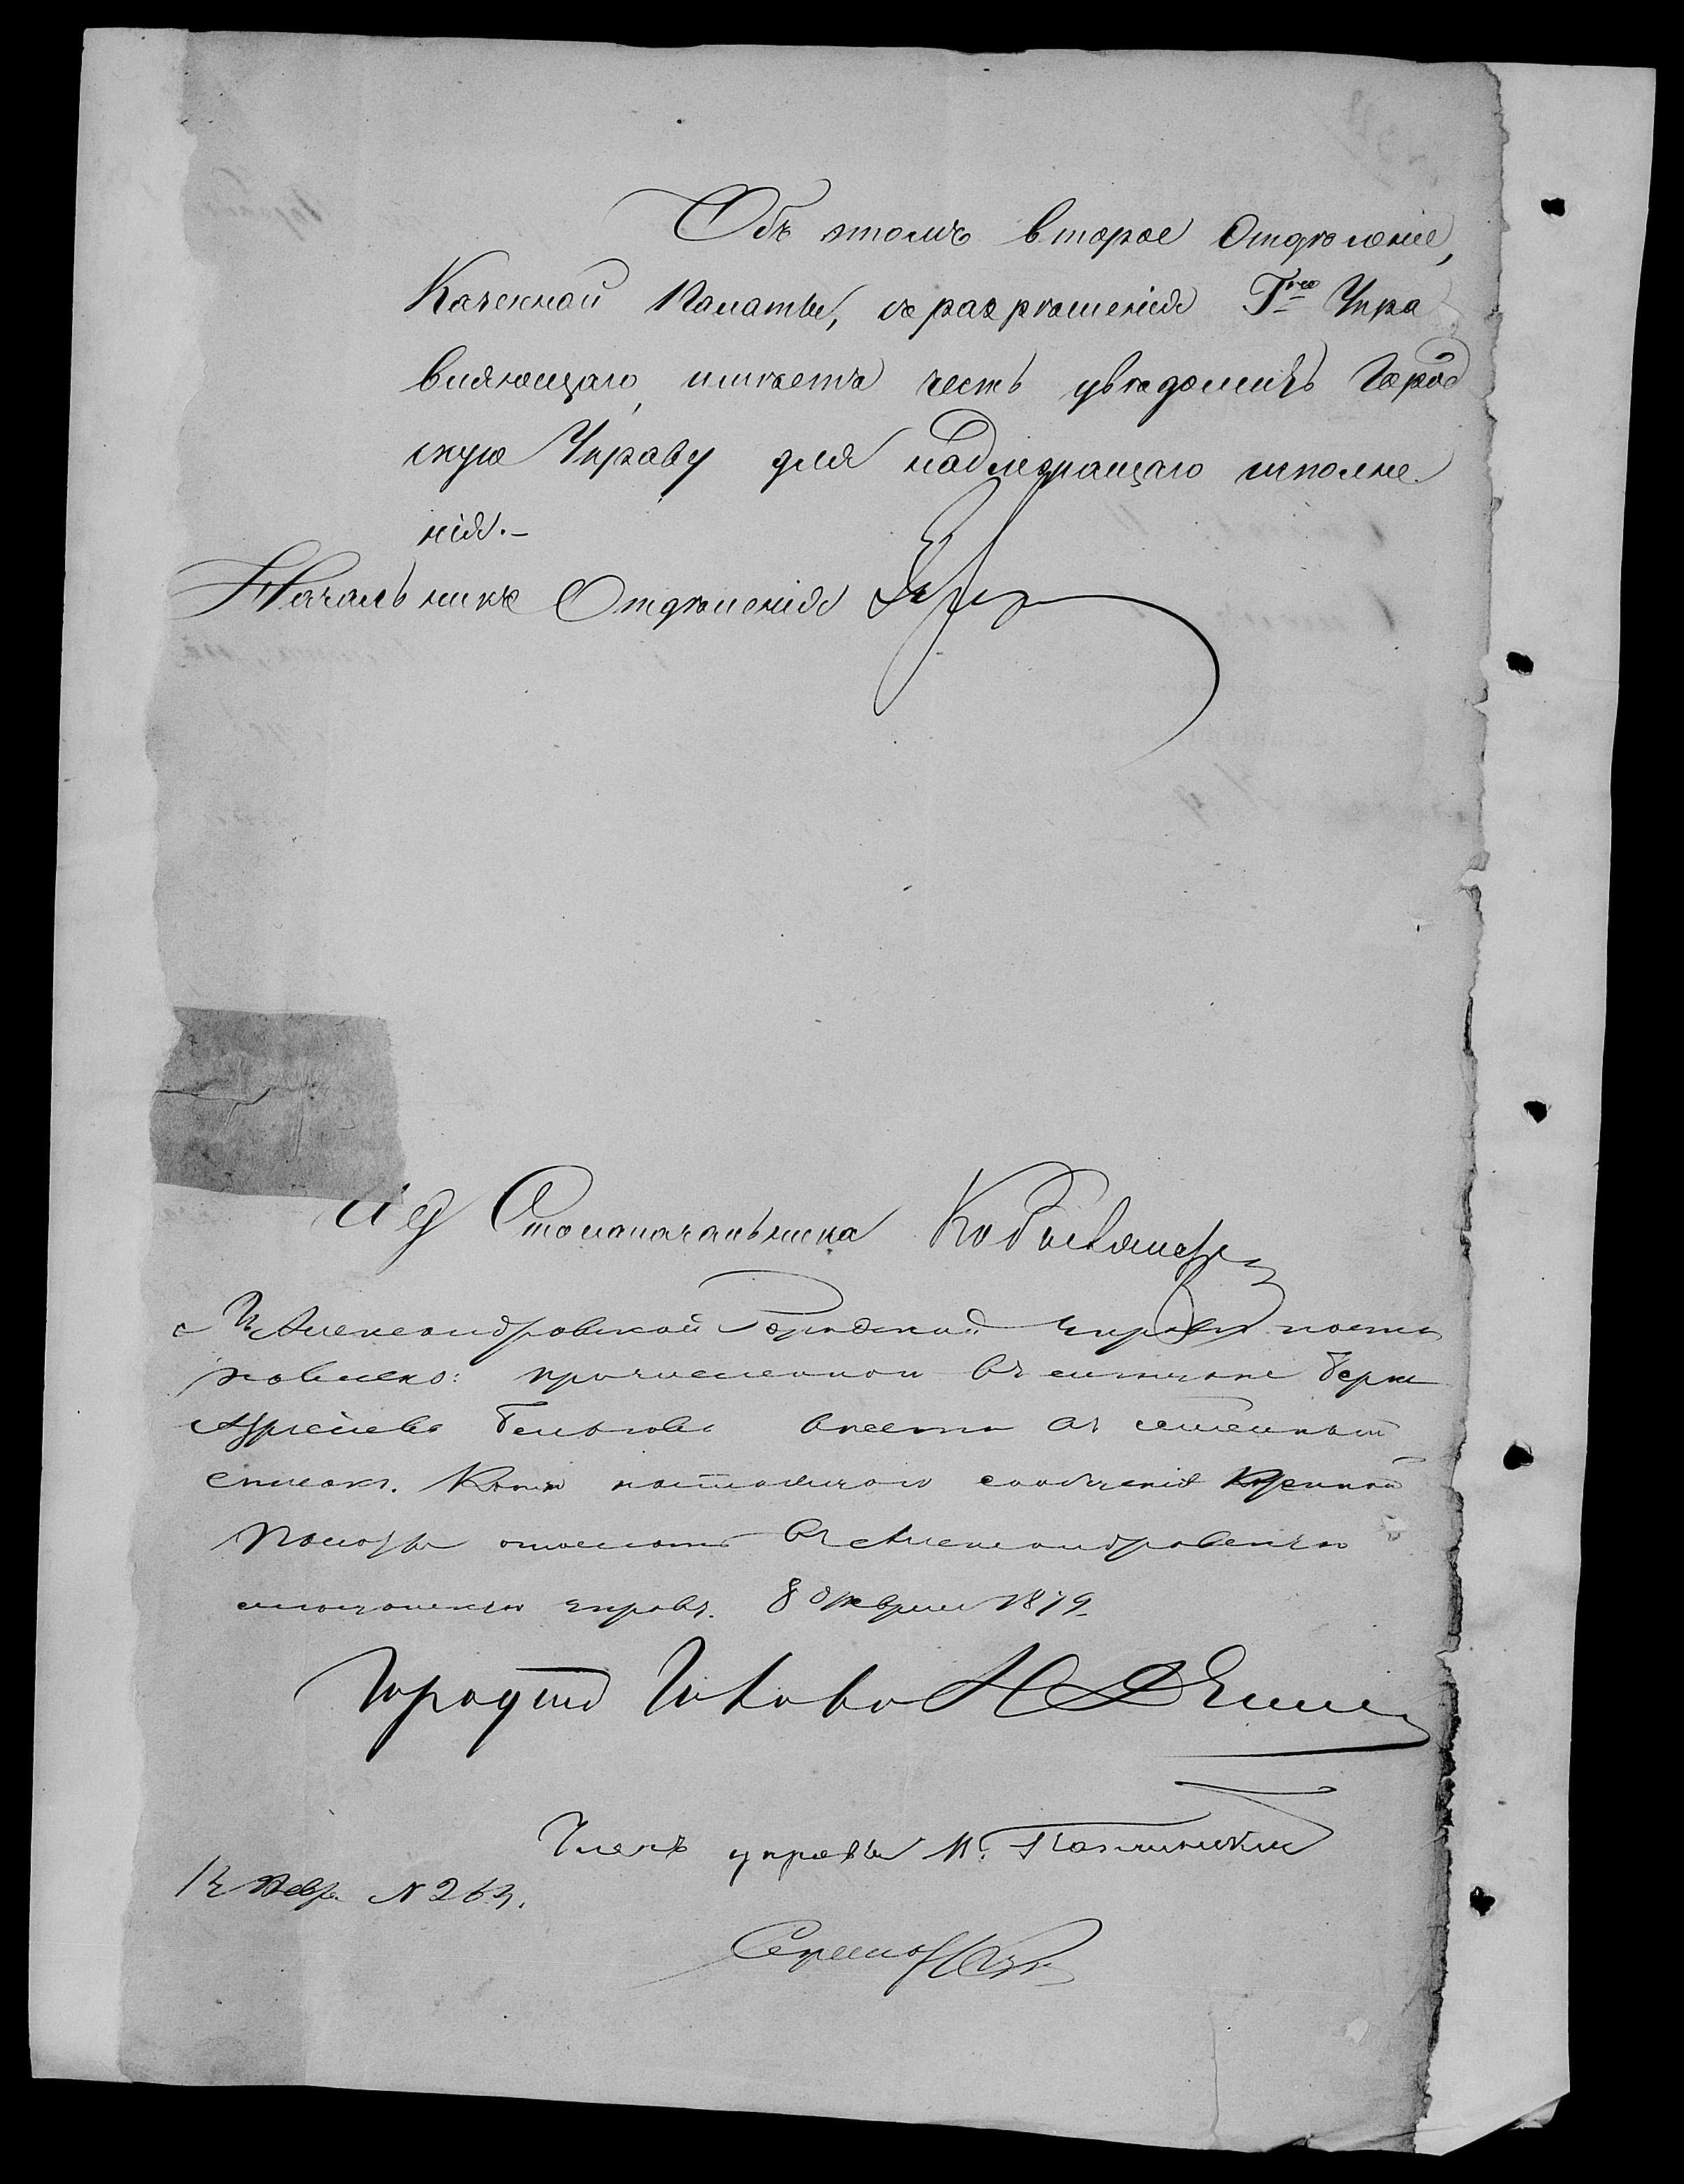 Объ этомъ второе Отдѣленіе,
Казенной Палаты, съ разрѣшенія Г<sup>на</sup> Упра
вляющаго, имѣетъ честь увѣдомить Город
скую Управу для надлежащаго исполне
нія.-
Начальникъ Отдѣленія
И д Столоначальника
Въ Александровской Городской Управѣ поста
новлено: причисленнаго въ мѣщане Берка
внести въ семейный
списокъ. Копію настоящаго сообщенія Казенной
Палаты отослать въ Александровскую
мѣщанскую управу. 8 Февраля 1879.
Городской Голова
Членъ управы
12 Февр. N 263.